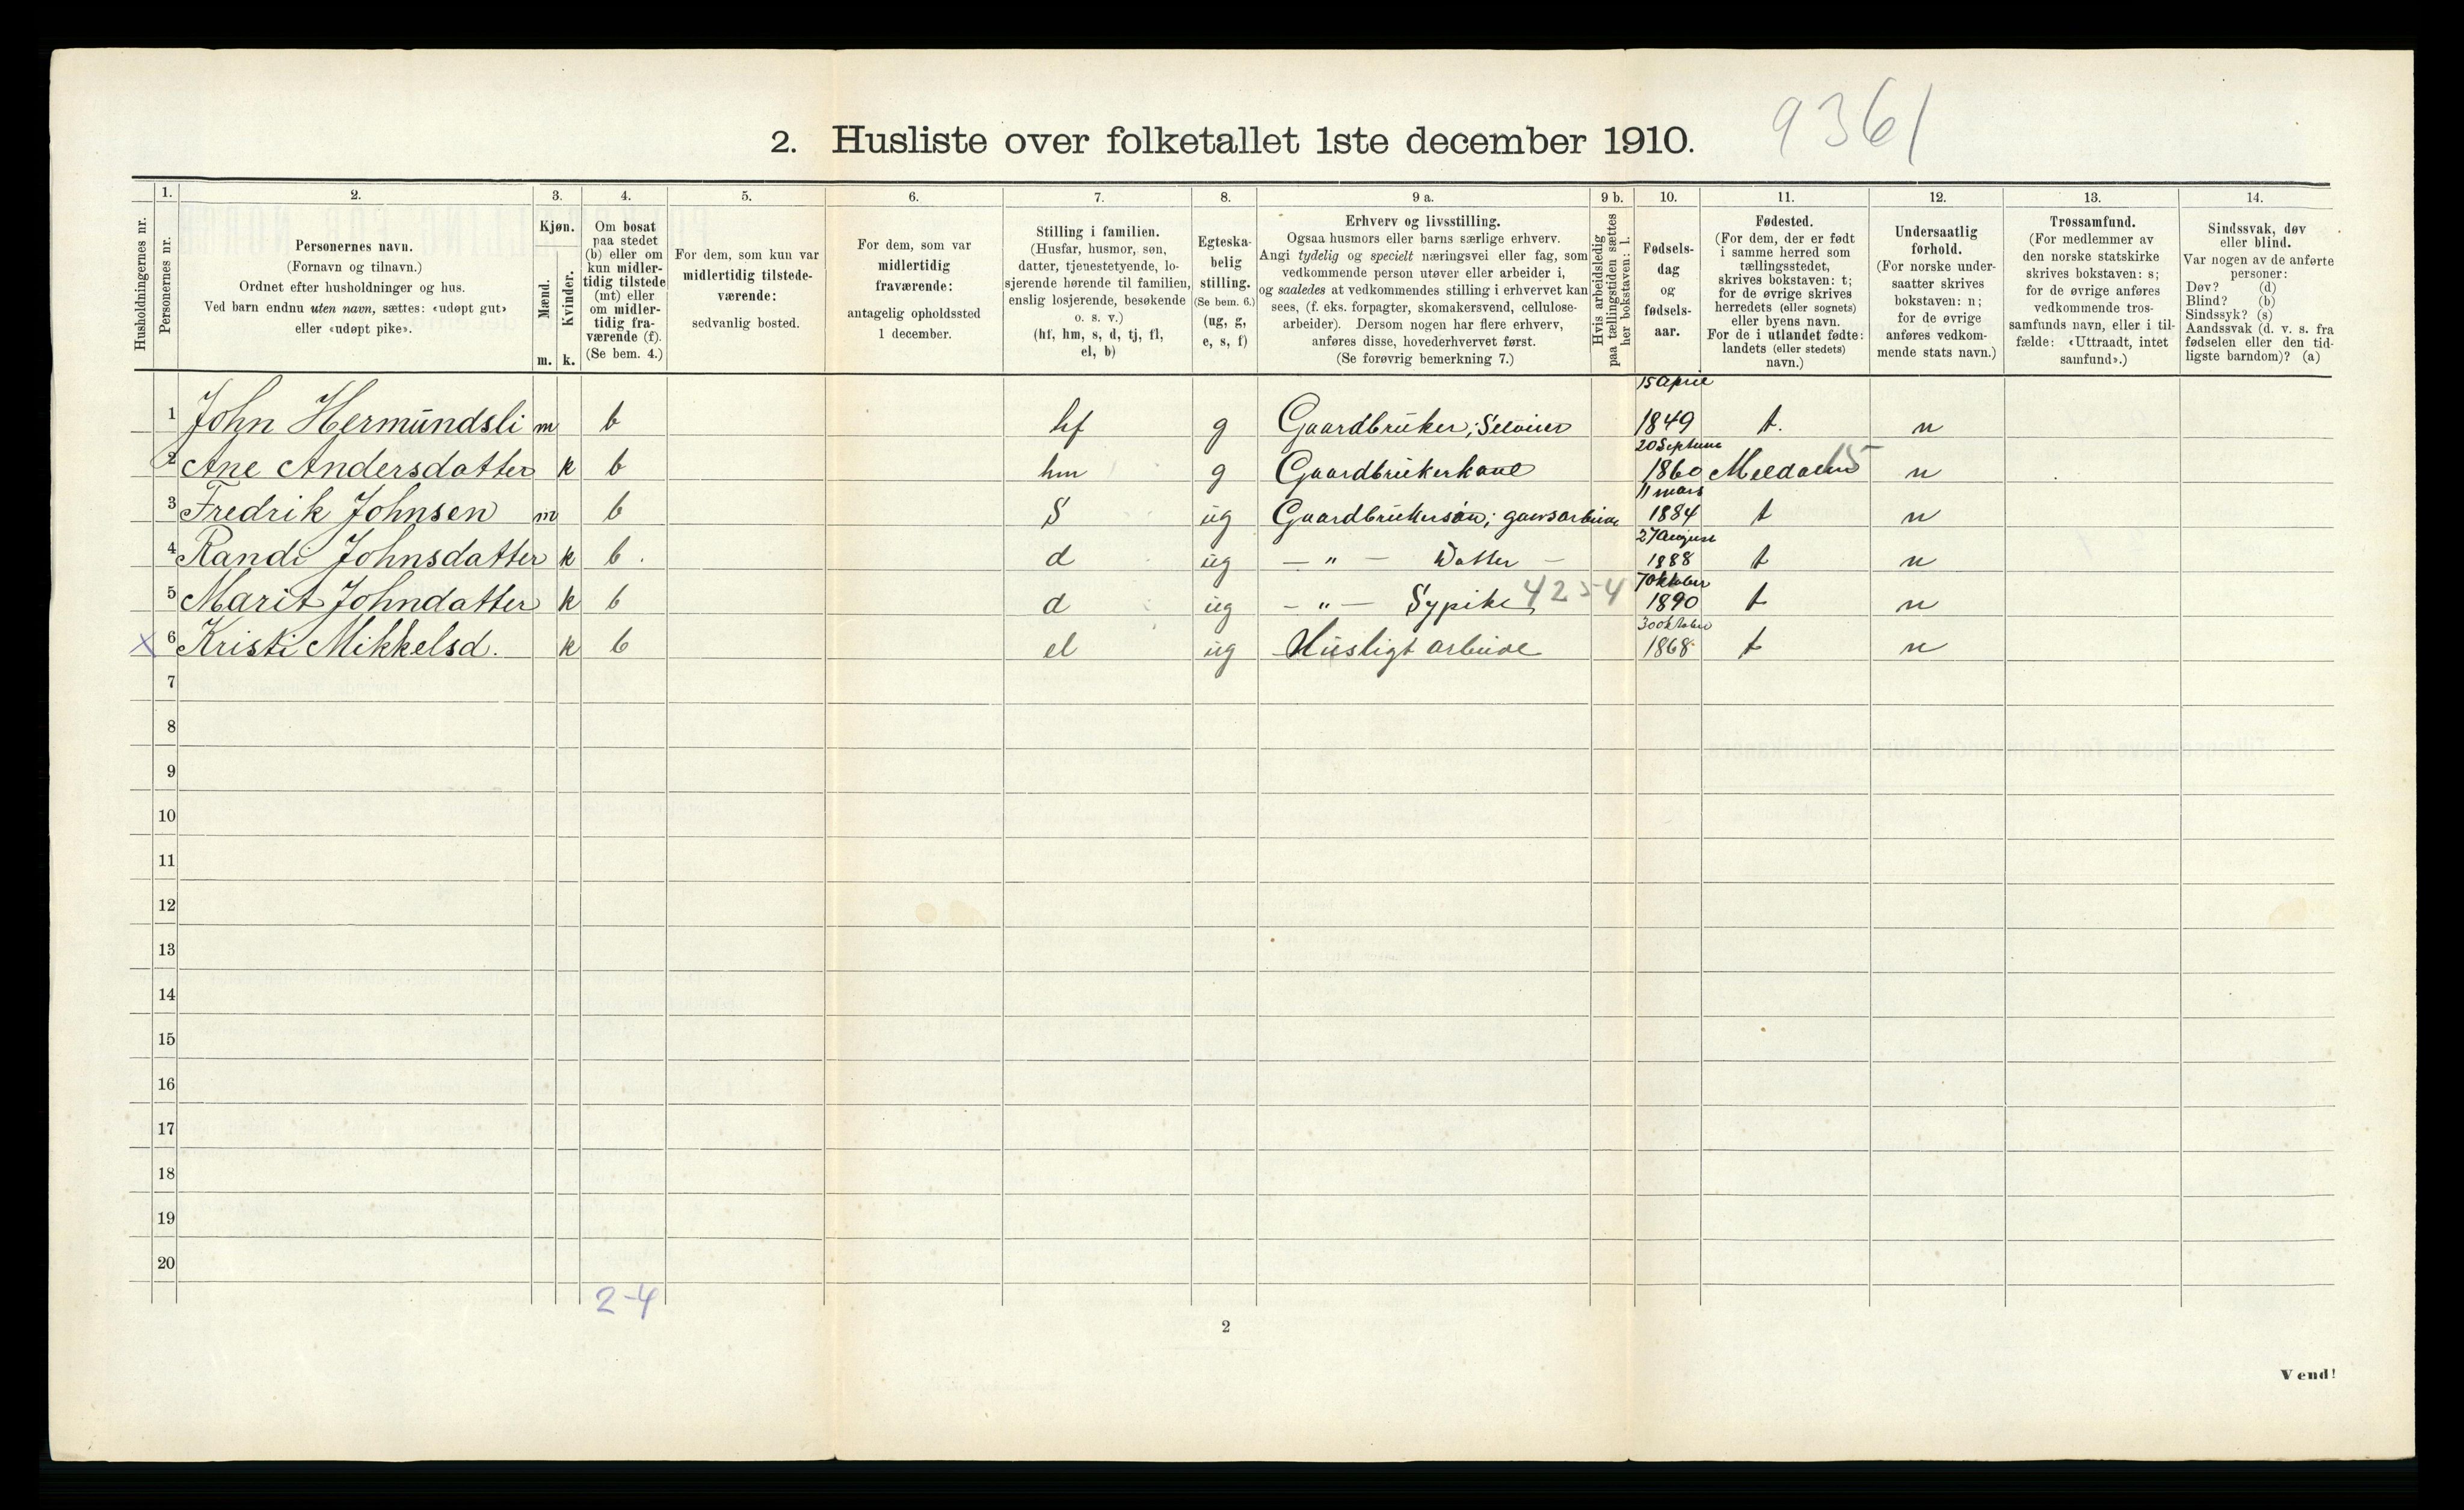 9361
2. Husliste over folketallet 1ste december 1910.
Husholdningernes nr.
1.
Personernes nr.
2.
Personernes navn.
(Fornavn og tilnavn.)
Ordnet efter husholdninger og hus.
Ved barn endnu uten navn, sættes: «udøpt gut»
eller «udøpt pike».
3.
Kjøn.
Mænd.
Kvinder.
m. k.
4.
Om bosat
paa stedet
(b) eller om
kun midler-
tidig tilstede
(mt) eller
om midler-
tidig fra-
værende (f).
(Se bem. 4.)
5.
For dem, som kun var
midlertidig tilstede-
værende:
sedvanlig bosted.
6.
For dem, som var
midlertidig
fraværende:
antagelig opholdssted
1 december.
7.
Stilling i familien.
(Husfar, husmor, søn,
datter, tjenestetyende, lo-
sjerende hørende til familien,
enslig losjerende, besøkende
o. s. v.)
(hf, hm, s, d, tj, fl,
el, b)
8.
Egteska-
belig
stilling.
(Se bem. 6.)
(ug, g,
e, s, f)
9 a.
Erhverv og livsstilling.
Ogsaa husmors eller barns særlige erhverv.
Angi tydelig og specielt næringsvei eller fag, som
vedkommende person utøver eller arbeider i,
og saaledes at vedkommendes stilling i erhvervet kan
sees, (f. eks. forpagter, skomakersvend, cellulose-
arbeider). Dersom nogen har flere erhverv,
anføres disse, hovederhvervet først.
(Se forøvrig bemerkning 7.)
9 b.
Hvis arbeidsledig
paa tællingstiden sættes
her bokstaven: l.
10.
Fødsels-
dag
og
fødsels-
aar.
11.
Fødested.
(For dem, der er født
i samme herred som
tællingsstedet,
skrives bokstaven: t;
for de øvrige skrives
herredets (eller sognets)
eller byens navn.
For de i utlandet fødte:
landets (eller stedets)
navn.)
12.
Undersaatlig
forhold.
(For norske under-
saatter skrives
bokstaven: n;
for de øvrige
anføres vedkom-
mende stats navn.)
13.
Trossamfund.
(For medlemmer av
den norske statskirke
skrives bokstaven: s;
for de øvrige anføres
vedkommende tros-
samfunds navn, eller i til-
fælde: «Uttraadt, intet
samfund».)
14.
Sindssvak, døv
eller blind.
Var nogen av de anførte
personer:
Døv? (d)
Blind? (b)
Sindssyk? (s)
Aandssvak (d. v. s. fra
fødselen eller den tid-
ligste barndom)? (a)
1 John Hermundsli m b hf g Gaardbruker; Seleier 15 April 1849 t. n
2 Ane Andersdatter k b hm g Gaardbrukerkone 20 Septem 1860 Meldalen 15 n
3 Fredrik Johnsen m b S ug Gaardbrukersøn; gaardsarbeide 11 mars 1884 t n
4 Randi Johnsdatter k b. d ug — " — Datter — 27 August 1888 t n
5 Marit Johndatter k b d ug — " — Sypike 4254 7 Oktober 1890 t n
x 6 Kristi Mikkelsd. k b el ug Husligt arbeide 30 oktober 1868 t n
7
8
9
10
11
12
13
14
15
16
17
18
19
20
2-4
2
Vend!